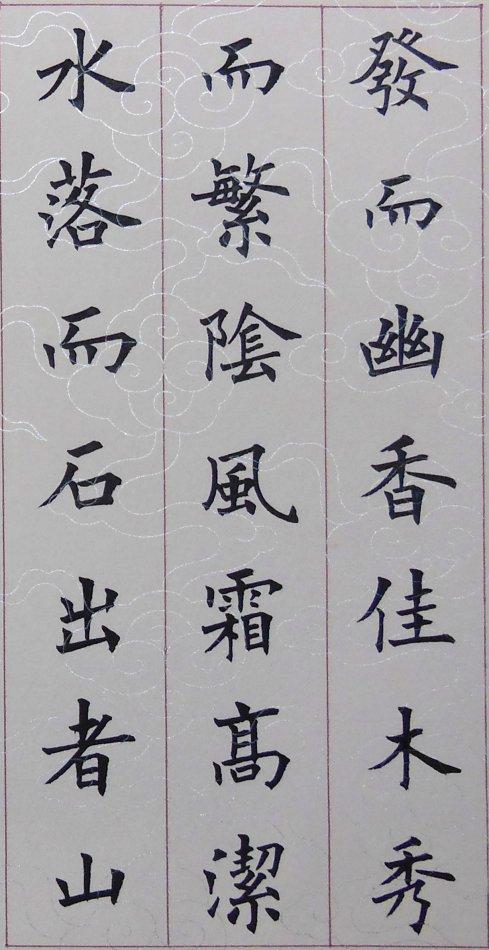 發而幽香佳木秀
而繁陰風霜髙潔
水落而石出者山